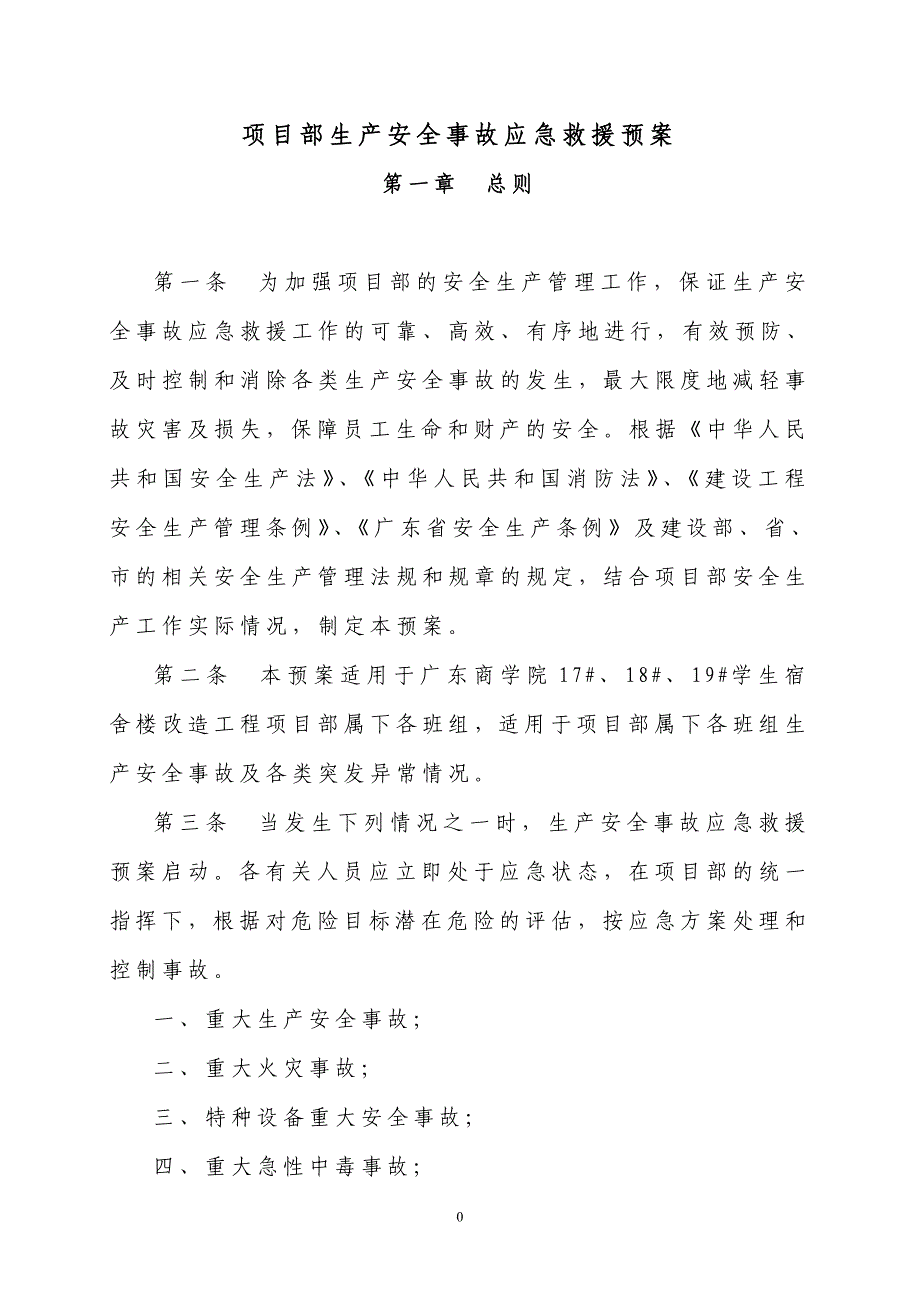 项目部生产安全事故应急救援预案
第一章　总则
第一条　为加强项目部的安全生产管理工作，保证生产安
全事故应急救援工作的可靠、高效、有序地进行，有效预防、
及时控制和消除各类生产安全事故的发生，最大限度地减轻事
故灾害及损失，保障员工生命和财产的安全。根据《中华人民
共和国安全生产法》、《中华人民共和国消防法》、《建设工程
安全生产管理条例》、《广东省安全生产条例》及建设部、省、
市的相关安全生产管理法规和规章的规定，结合项目部安全生
产工作实际情况，制定本预案。
第二条　本预案适用于广东商学院 17#、18#、19#学生宿
舍楼改造工程项目部属下各班组，适用于项目部属下各班组生
产安全事故及各类突发异常情况。
第三条　当发生下列情况之一时，生产安全事故应急救援
预案启动。各有关人员应立即处于应急状态，在项目部的统一
指挥下，根据对危险目标潜在危险的评估，按应急方案处理和
控制事故。
一、重大生产安全事故；
二、重大火灾事故；
三、特种设备重大安全事故；
四、重大急性中毒事故；
0